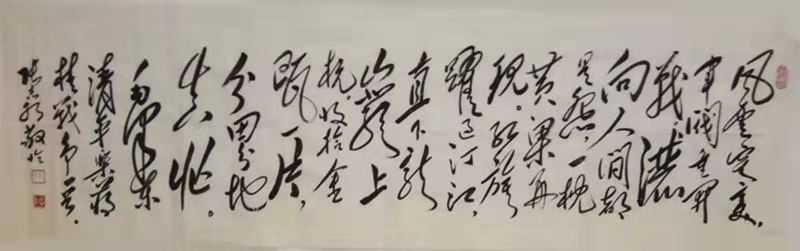 风云突变，
军阀重开
战。洒
向人间都
是怨，一枕
黄粱再
现。红旗
跃过汀江，
直下龙
岩上
杭。收拾金
瓯一片，
分田分地
真忙。
毛泽东
清平乐蒋
桂战争一首。
敬